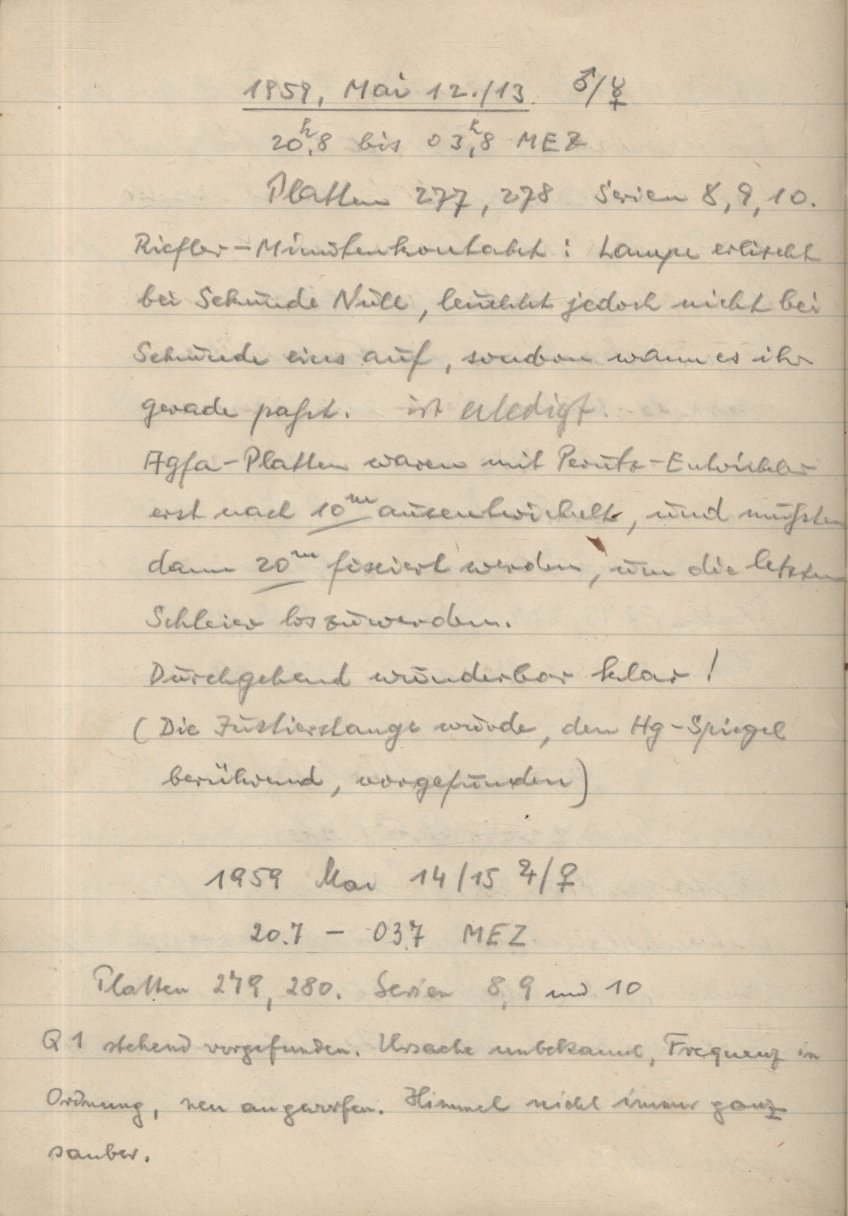 1959, Mai 12./13. ♂/☿
20ʰ,8 bis 03ʰ,8 MEZ
Platten 277, 278 Serien 8, 9, 10.
Riefler-Minutenkontakt: Lampe erlischt
bei Sekunde Null, leuchtet jedoch nicht bei
Sekunde eins auf, sondern wann es ihr
gerade paßt. ist erledigt.
Agfa-Platten waren mit Perutz-Entwickler
erst nach 10ᵐ ausentwickelt, und mußten
dann 20ᵐ fixiert werden, um die letzten
Schleier loszuwerden.
Durchgehend wunderbar klar!
(Die Justierstange wurde, den Hg-Spiegel
berührend, vorgefunden)
1959 Mai 14/15 ♃/♀
20.7 – 03.7 MEZ
Platten 279, 280. Serien 8, 9 und 10
Q1 stehend vorgefunden. Ursache unbekannt, Frequenz in
Ordnung, neu angeworfen. Himmel nicht immer ganz
sauber.